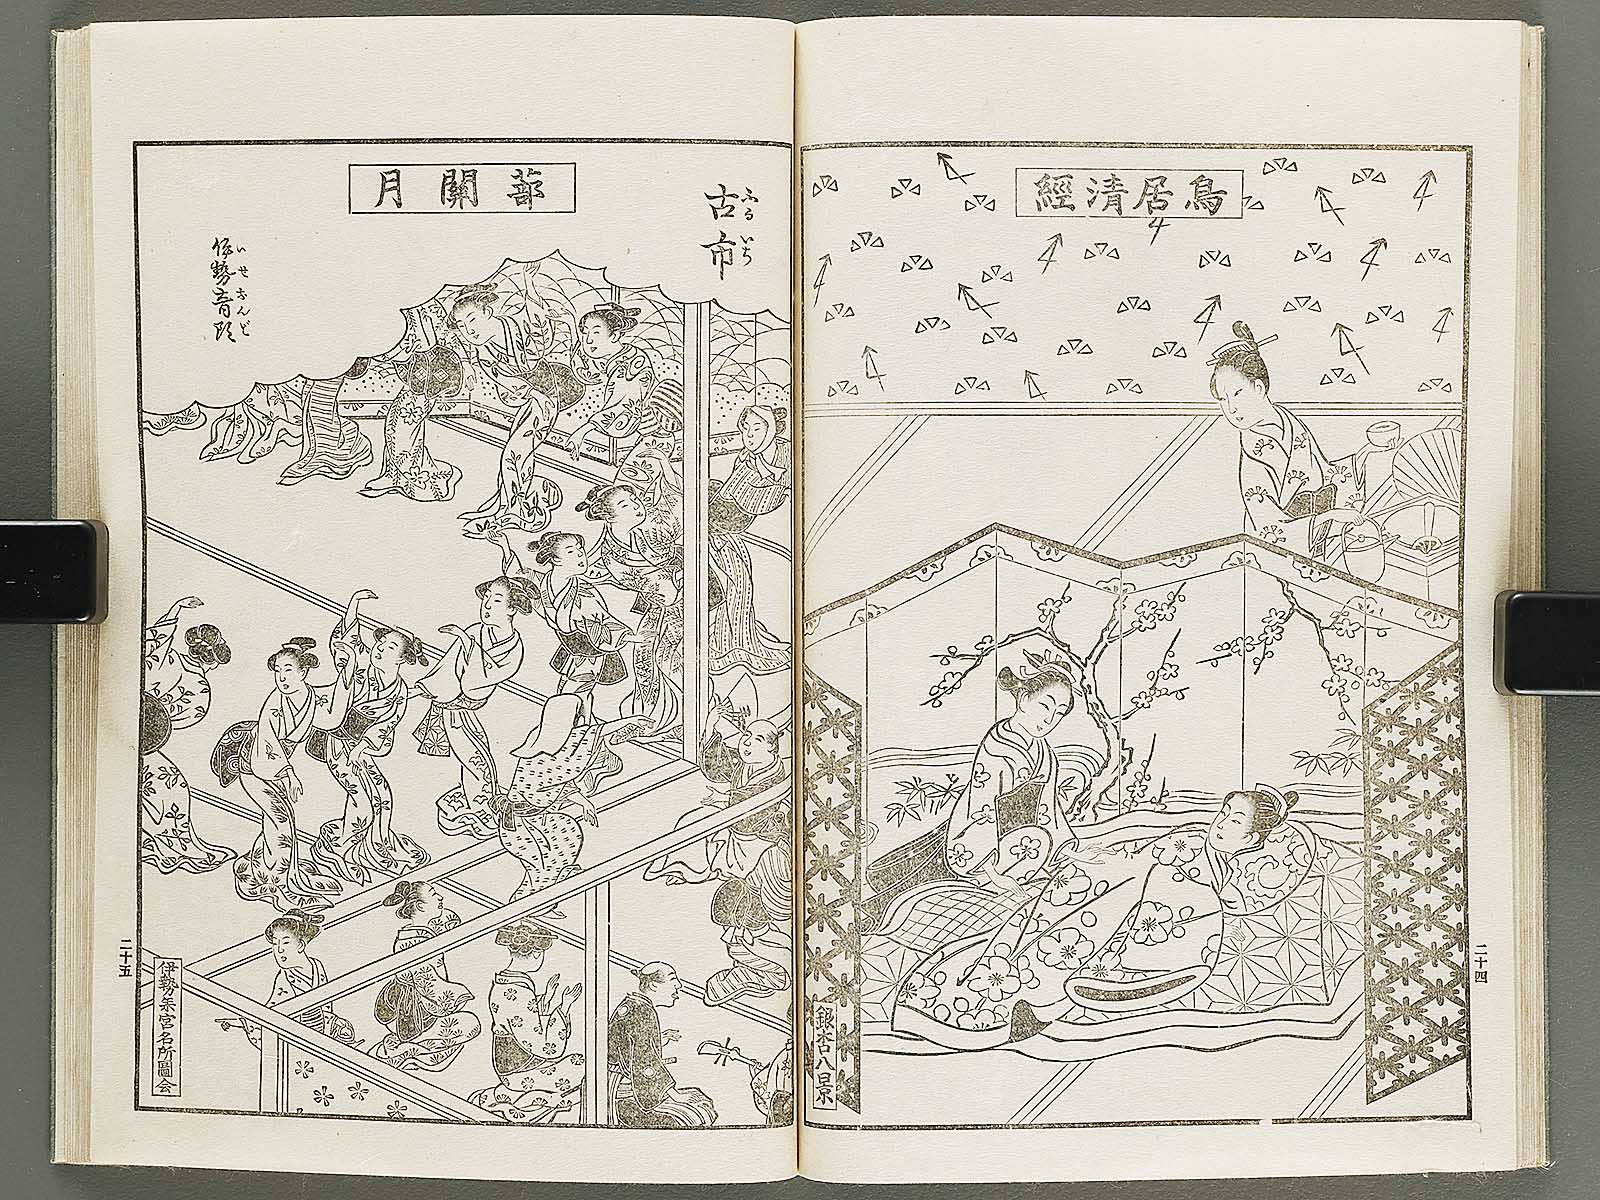 鳥居清經
銀荅八景
二十四
蔀關月
古市
ふるいち
伊勢音頭
いせおんど
伊勢参宮名所圖会
二十五